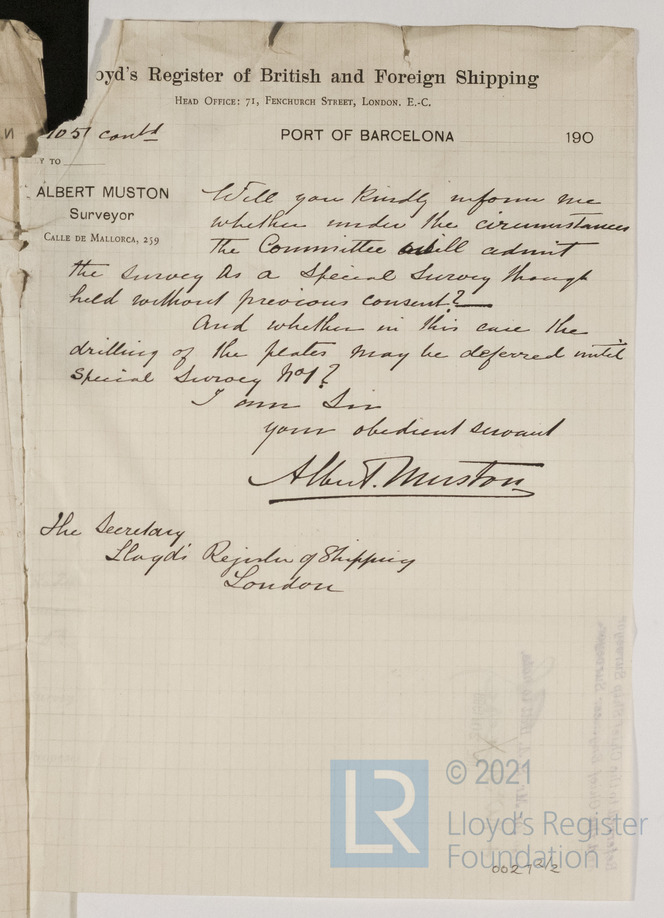 oyd's Register of British and Foreign Shipping
HEAD OFFICE: 71, FENCHURCH STREET, LONDON. E.-C.
1051 contd
PORT OF BARCELONA 190
Y TO
ALBERT MUSTON
Surveyor
CALLE DE MALLORCA, 259
Will you kindly inform me
whether under the circumstances
the Committee will admit
the survey as a Special Survey though
held without previous consent?
And whether in this case the
drilling of the plates may be deferred until
Special Survey No1?
I am Sir
your obedient servant
Albert Muston
The Secretary
Lloyd's Register of Shipping
London
LR
© 2021
Lloyd's Register
Foundation
0027 2/2